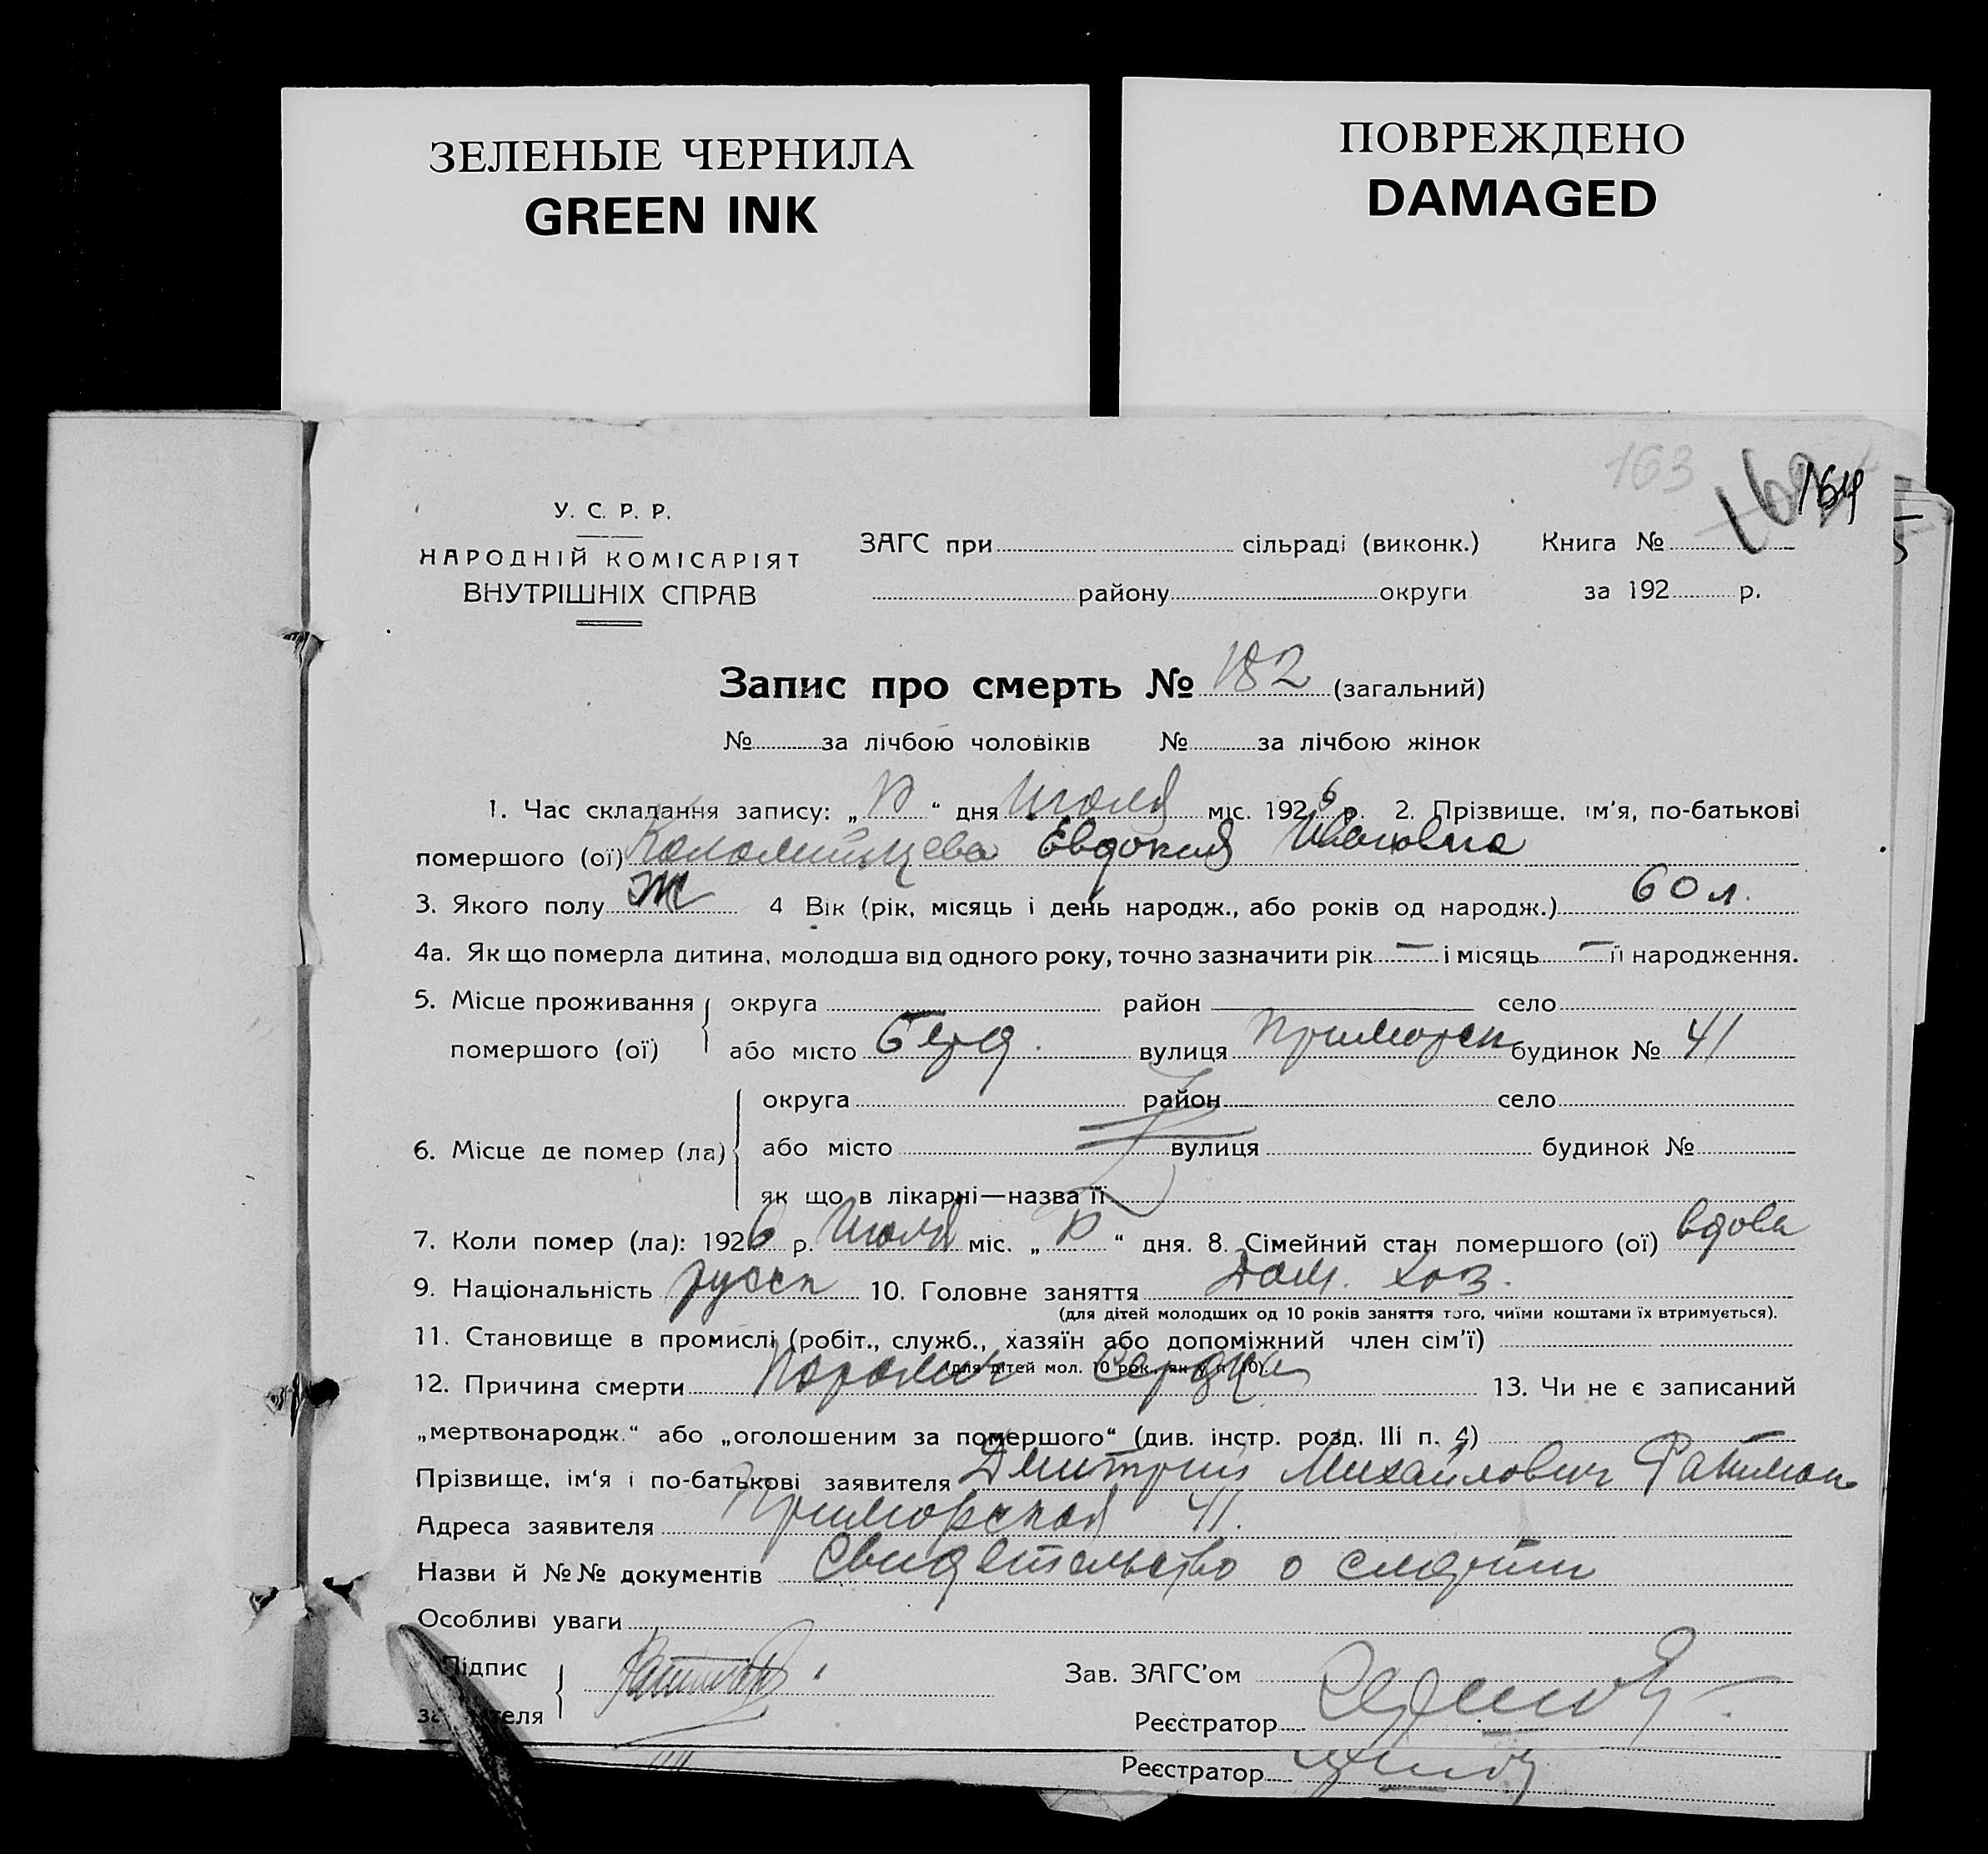 ЗЕЛЕНЫЕ ЧЕРНИЛА
GREEN INK
ПОВРЕЖДЕНО
DAMAGED
163
164
У. С. Р. Р.
НАРОДНІЙ КОМІСАРІЯТ
ВНУТРІШНІХ СПРАВ
ЗАГС при сільраді (виконк.) Книга №
району округи за 192 р.
Запис про смерть № 182 (загальний)
№ за лічбою чоловіків № за лічбою жінок
1. Час складання запису: „ “ дня Июля міс. 1926 р. 2. Прізвище, ім'я, по-батькові
помершого (ої) Коломийцева Евдокия Ивановна
3. Якого полу Ж 4 Вік (рік, місяць і день народж., або років од народж.) 60 л.
4а. Як що померла дитина, молодша від одного року, точно зазначити рік — і місяць — її народження.
5. Місце проживання округа район село
помершого (ої) або місто Берд. вулиця Приморск будинок № 41
округа район село
6. Місце де помер (ла) або місто вулиця будинок №
як що в лікарні—назва її
7. Коли помер (ла): 1926 р. Июля міс. „ “ дня. 8. Сімейний стан помершого (ої) вдова
9. Національність русск 10. Головне заняття Дом. хоз.
(для дітей молодших од 10 років заняття того, чиїми коштами їх втримується).
11. Становище в промислі (робіт., служб., хазяїн або допоміжний член сім'ї)
(для дітей мол. 10 рок., як у п. 10).
12. Причина смерти Паралич сердца 13. Чи не є записаний
„мертвонародж.“ або „оголошеним за помершого“ (див. інстр. розд. III п. 4) —
Прізвище, ім'я і по-батькові заявителя Дмитрий Михайлович
Адреса заявителя Приморская 41.
Назви й №№ документів Свидетельство о смерти
Особливі уваги
Підпис
Зав. ЗАГС'ом
Реєстратор
Реєстратор